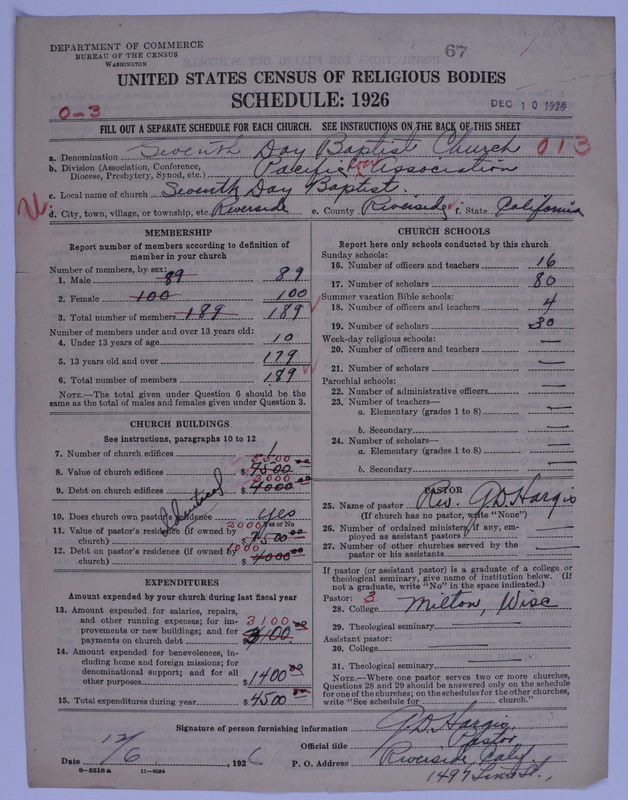 67
DEPARTMENT OF COMMERCE
BUREAU OF THE CENSUS
WASHINGTON
UNITED STATES CENSUS OF RELIGIOUS BODIES
SCHEDULE: 1926
DEC 10 1926
0-3
FILL OUT A SEPARATE SCHEDULE FOR EACH CHURCH. SEE INSTRUCTIONS ON THE BACK OF THIS SHEET
a. Denomination Seventh Day Baptist Church 013
b. Division (Association, Conference, Diocese, Presbytery, Synod, etc.) Pacific Coast Association
c. Local name of church Seventh Day Baptist
d. City, town, village, or township, etc. Riverside e. County Riverside f. State California
MEMBERSHIP
Report number of members according to definition of member in your church
Number of members, by sex:
1. Male 89 89
2. Female 100 100
3. Total number of members 189 189
Number of members under and over 13 years old:
4. Under 13 years of age 10
5. 13 years old and over 179
6. Total number of members 189
NOTE.—The total given under Question 6 should be the same as the total of males and females given under Question 3.
CHURCH BUILDINGS
See instructions, paragraphs 10 to 12
7. Number of church edifices 1
8. Value of church edifices $ 7500.00
9. Debt on church edifices $ 3000 4000.00
10. Does church own pastor's residence yes
Yes or No
11. Value of pastor's residence (if owned by church) 2000 $ 7500.00
12. Debt on pastor's residence (if owned by church) 1000 $ 4000.00
EXPENDITURES
Amount expended by your church during last fiscal year
13. Amount expended for salaries, repairs, and other running expenses; for improvements or new buildings; and for payments on church debt 3100.00 $
14. Amount expended for benevolences, including home and foreign missions; for denominational support; and for all other purposes $ 1400.00
15. Total expenditures during year $ 4500.00
CHURCH SCHOOLS
Report here only schools conducted by this church
Sunday schools:
16. Number of officers and teachers 16
17. Number of scholars 80
Summer vacation Bible schools:
18. Number of officers and teachers 4
19. Number of scholars 30
Week-day religious schools:
20. Number of officers and teachers —
21. Number of scholars —
Parochial schools:
22. Number of administrative officers —
23. Number of teachers—
a. Elementary (grades 1 to 8) —
b. Secondary —
24. Number of scholars—
a. Elementary (grades 1 to 8) —
b. Secondary —
PASTOR
25. Name of pastor Rev. G D Hargis
(If church has no pastor, write "None")
26. Number of ordained ministers, if any, employed as assistant pastors —
27. Number of other churches served by the pastor or his assistants —
If pastor (or assistant pastor) is a graduate of a college or theological seminary, give name of institution below. (If not a graduate, write "No" in the space indicated.)
Pastor: 3
28. College Milton, Wisc
29. Theological seminary —
Assistant pastor:
30. College —
31. Theological seminary —
NOTE.—Where one pastor serves two or more churches, Questions 28 and 29 should be answered only on the schedule for one of the churches; on the schedules for the other churches, write "See schedule for church."
Signature of person furnishing information G. D. Hargis
Official title Pastor
Date 12/6, 1926 P. O. Address Riverside, Calif.
8-5518a 11-9284 1497